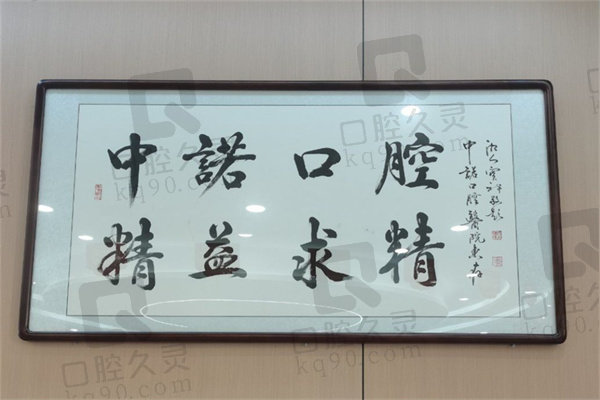 中諾口腔
精益求精
中諾口腔醫院惠存
口腔久灵
kq90.com
口腔久灵
kq90.com
口腔久灵
kq90.com